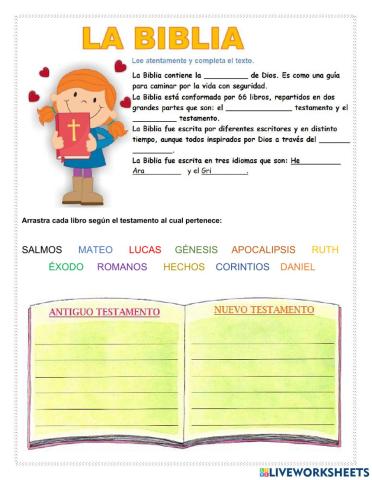 LA BIBLIA
Lee atentamente y completa el texto.
La Biblia contiene la __________ de Dios. Es como una guía
para caminar por la vida con seguridad.
La Biblia está conformada por 66 libros, repartidos en dos
grandes partes que son: el _______________ testamento y el
__________ testamento.
La Biblia fue escrita por diferentes escritores y en distinto
tiempo, aunque todos inspirados por Dios a través del _______
_________.
La Biblia fue escrita en tres idiomas que son: He_________
Ara________ y el Gri________.
Arrastra cada libro según el testamento al cual pertenece:
SALMOS MATEO LUCAS GÉNESIS APOCALIPSIS RUTH
ÉXODO ROMANOS HECHOS CORINTIOS DANIEL
ANTIGUO TESTAMENTO NUEVO TESTAMENTO
LIVEWORKSHEETS